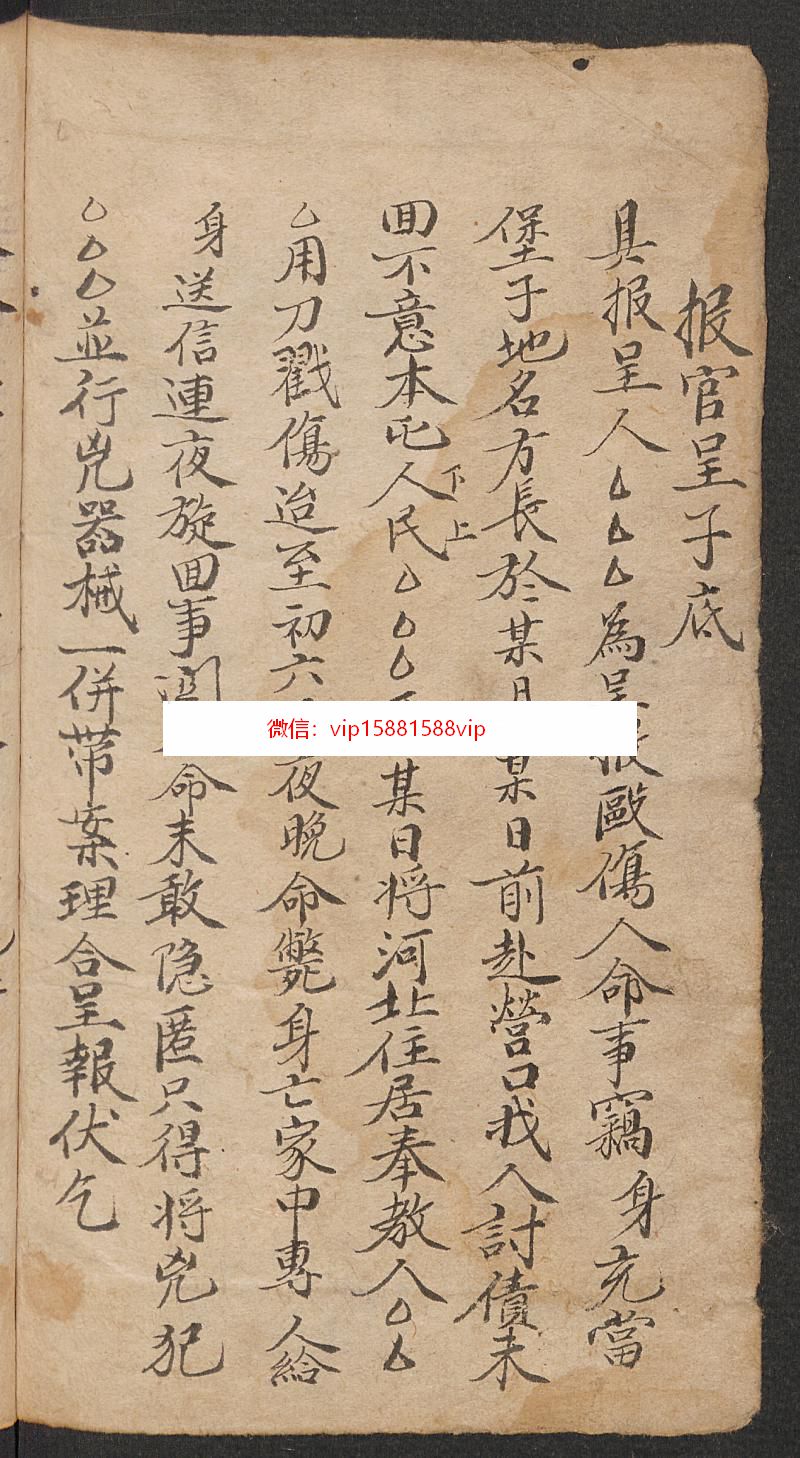 报官呈子底
具报呈人△△△為呈报毆傷人命事竊身充當
堡子地名方長於某月某日前赴營口找人討債未
囬不意本屯人民△△△某日将河北住居奉教人△△
下上
△用刀戳傷迨至初六夜晚命斃身亡家中專人給
身送信連夜旋囬事関命未敢隐匿只得将兇犯
△△△並行兇器械一併带案理合呈報伏乞
微信：vip15881588vip